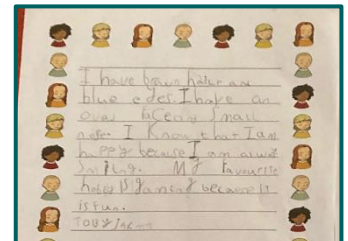 I have brown hair and
blue eyes. I have an
oval face and small
nose. I know that I am
happy because I am
smiling. My favourite
hobby is gaming because it
is fun.
TOBY